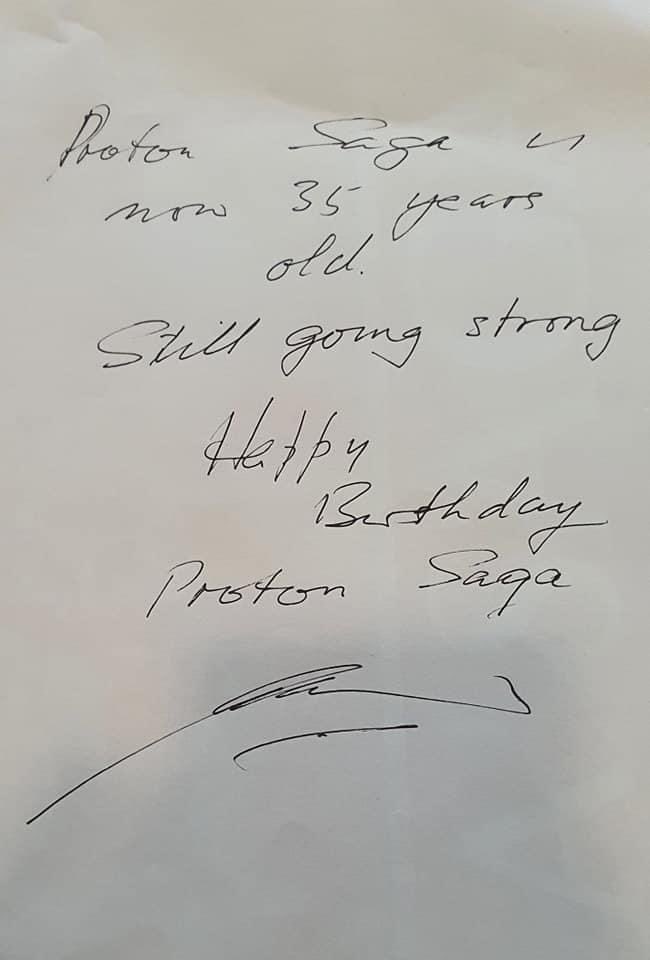 Proton Saga is
now 35 years
old.
Still going strong
Happy
Birthday
Proton Saga